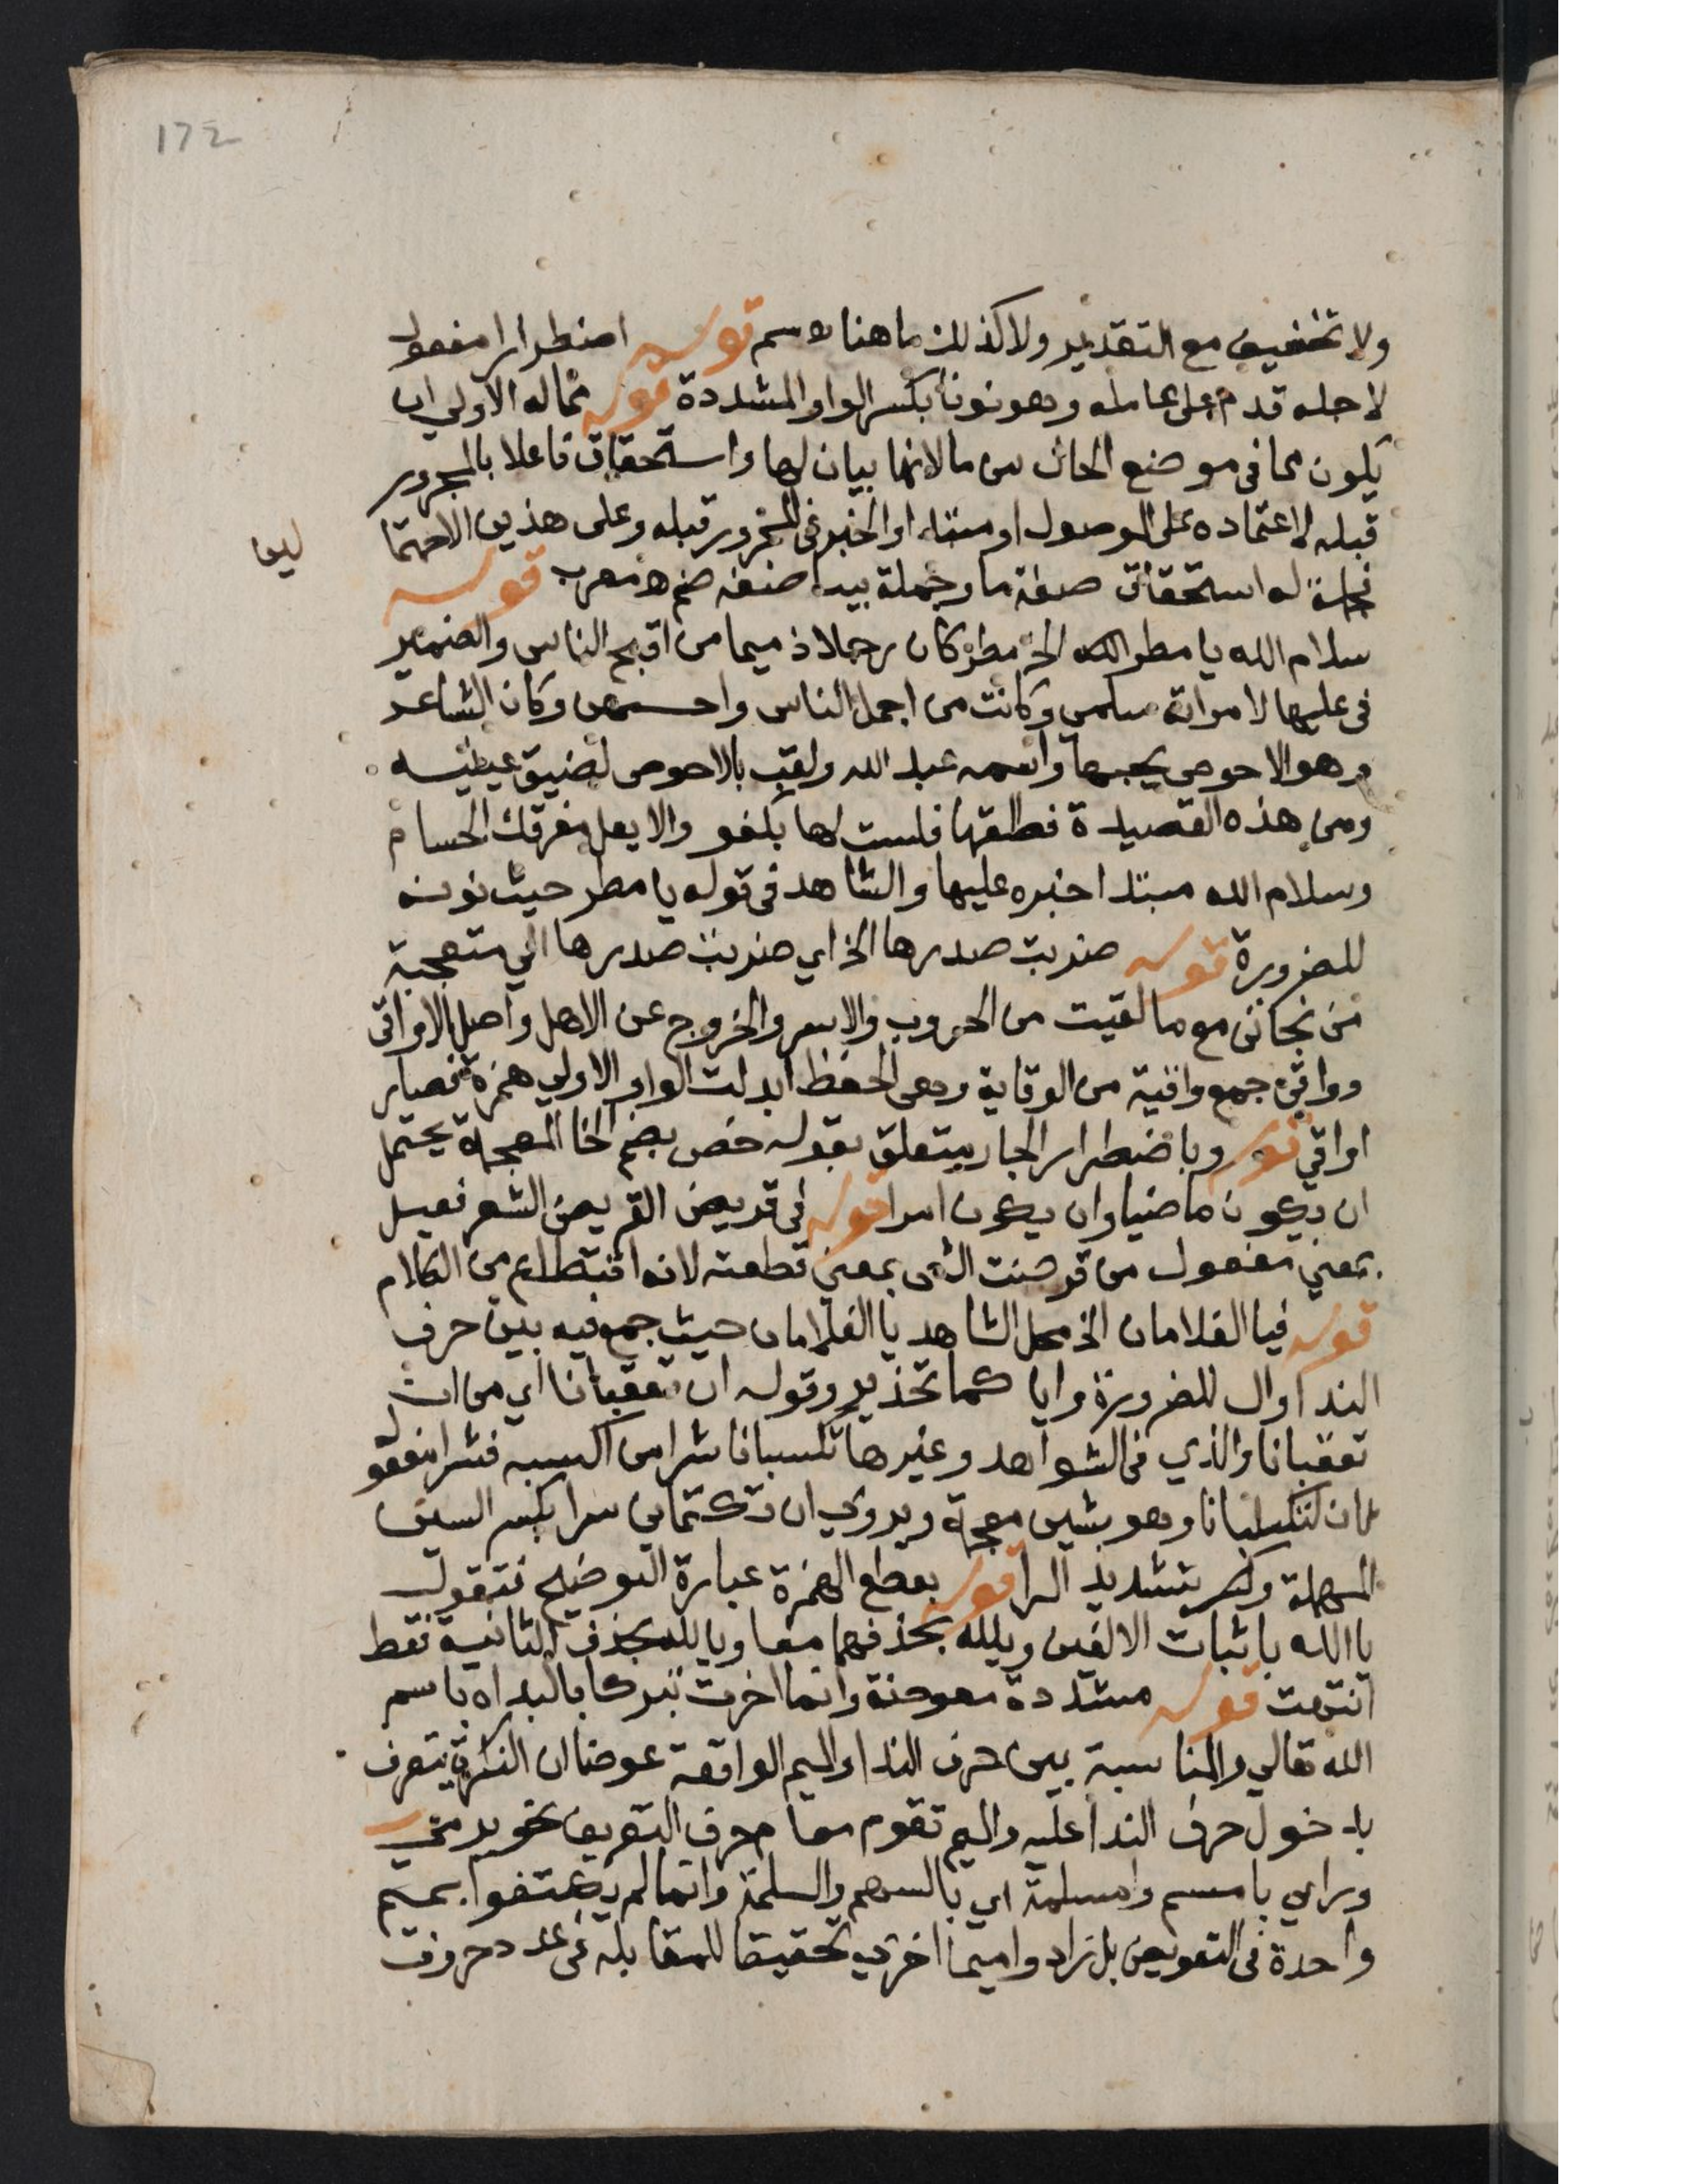 172
ولا تخفيف مع التقدير ولا كذلك ما هنا سم قوله اضطرارا مفعول
لاجله قدم على عامله وهو نونا بكسر الواو المشددة قوله مماله الاولى ان
يكون مما في موضع الحال من ما لانها بيان لها واستحقاق فاعلا بالمجرور
قبله لاعتماده على الموصول او مبتدا والخبر في المجرور قبله وعلى هذين الاحتما
لين
فجملة له استحقاق صفة ما وجملة بينا صفة ضم اه معرب قوله
سلام الله يا مطر الخ مطر كان رجلا ذميما من اقبح الناس والضمير
في عليها لامراته سلمى وكانت من اجمل الناس واحسنهن وكان الشاعر
وهو الاحوص يحبها واسمه عبد الله ولقب بالاحوص لضيق عينيه
ومن هذه القصيدة فطلقها فلست لها بكفو والا يعل مفرقك الحسام
وسلام الله مبتدا خبره عليها والشاهد في قوله يا مطر حيث نونه
للضرورة قوله ضربت صدرها الخ اي ضربت صدرها الي متعجبة
من نجاتي مع ما لقيت من الحروب والاسر والخروج عن الاهل واصل الاواقي
وواقي جمع واقية من الوقاية وهي الحفظ ابدلت الواو الاولى همزة فصار
اواقي قوله وباضطرار الجار يتعلق بقوله خص بضم الخا المعجمة يحتمل
ان يكون ماضيا وان يكون امرا قوله في قريض القريض الشعر فعيل
بمعني مفعول من قرضت الشي بمعني قطعته لانه اقتطاع من الكلام
قوله فيا الغلامان الخ محل الشاهد يا الغلامان حيث جمع فيه بين حرف
الندا وال للضرورة وايا كما تحذير وقوله ان تعقبانا اي من ان
تعقبانا والذي في الشواهد وغيرها تكسبانا شرا من اكسبه فشرا مفعول
ثان لتكسبانا وهو بشين معجمة ويروي ان تكتماني سرا بكسر السين
المهملة وبتشديد الرا قوله بقطع الهمزة عبارة التوضيح فتقول
يا الله باثبات الالفين ويلله بحذفهما معا ويا لله بحذف الثانية فقط
انتهت قوله مشددة معوضة وانما اخرت تبركا بالبداه باسم
الله تعالي والمناسبة بين حرف الندا والميم الواقعة عوضا ان النكرة يتعرف
بدخول حرف الندا عليه والميم تقوم مقام حرف التعريف نحو يرمي
وراي بامسهم وامسلمة اي بالسهم والسلمة وانما لم يكتفوا بميم
واحدة في التعويض بل زادوا ميما اخري تحقيقا للمقابله في عدد حروف